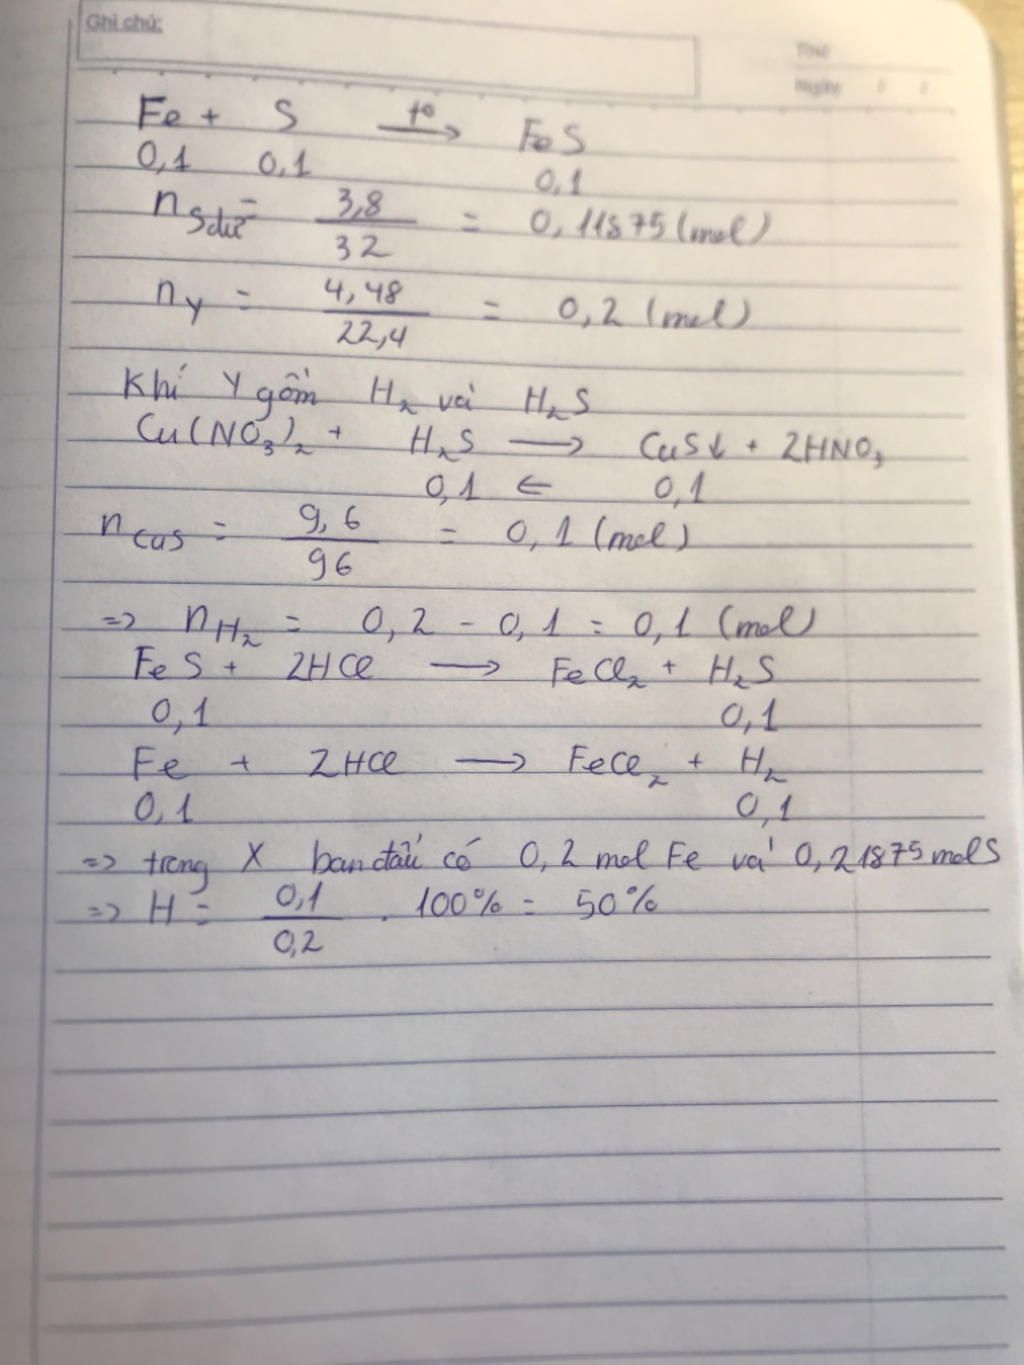 Ghi chú:
Thứ
Ngày / /
Fe + S —t°→ FeS
0,1 0,1 0,1
n S dư = 3,8/32 = 0,11875 (mol)
n Y = 4,48/22,4 = 0,2 (mol)
Khí Y gồm H₂ và H₂S
Cu(NO₃)₂ + H₂S → CuS↓ + 2HNO₃
0,1 ← 0,1
n CuS = 9,6/96 = 0,1 (mol)
=> n H₂ = 0,2 - 0,1 = 0,1 (mol)
FeS + 2HCl → FeCl₂ + H₂S
0,1 0,1
Fe + 2HCl → FeCl₂ + H₂
0,1 0,1
=> trong X ban đầu có 0,2 mol Fe và 0,21875 mol S
=> H = 0,1/0,2 . 100% = 50%